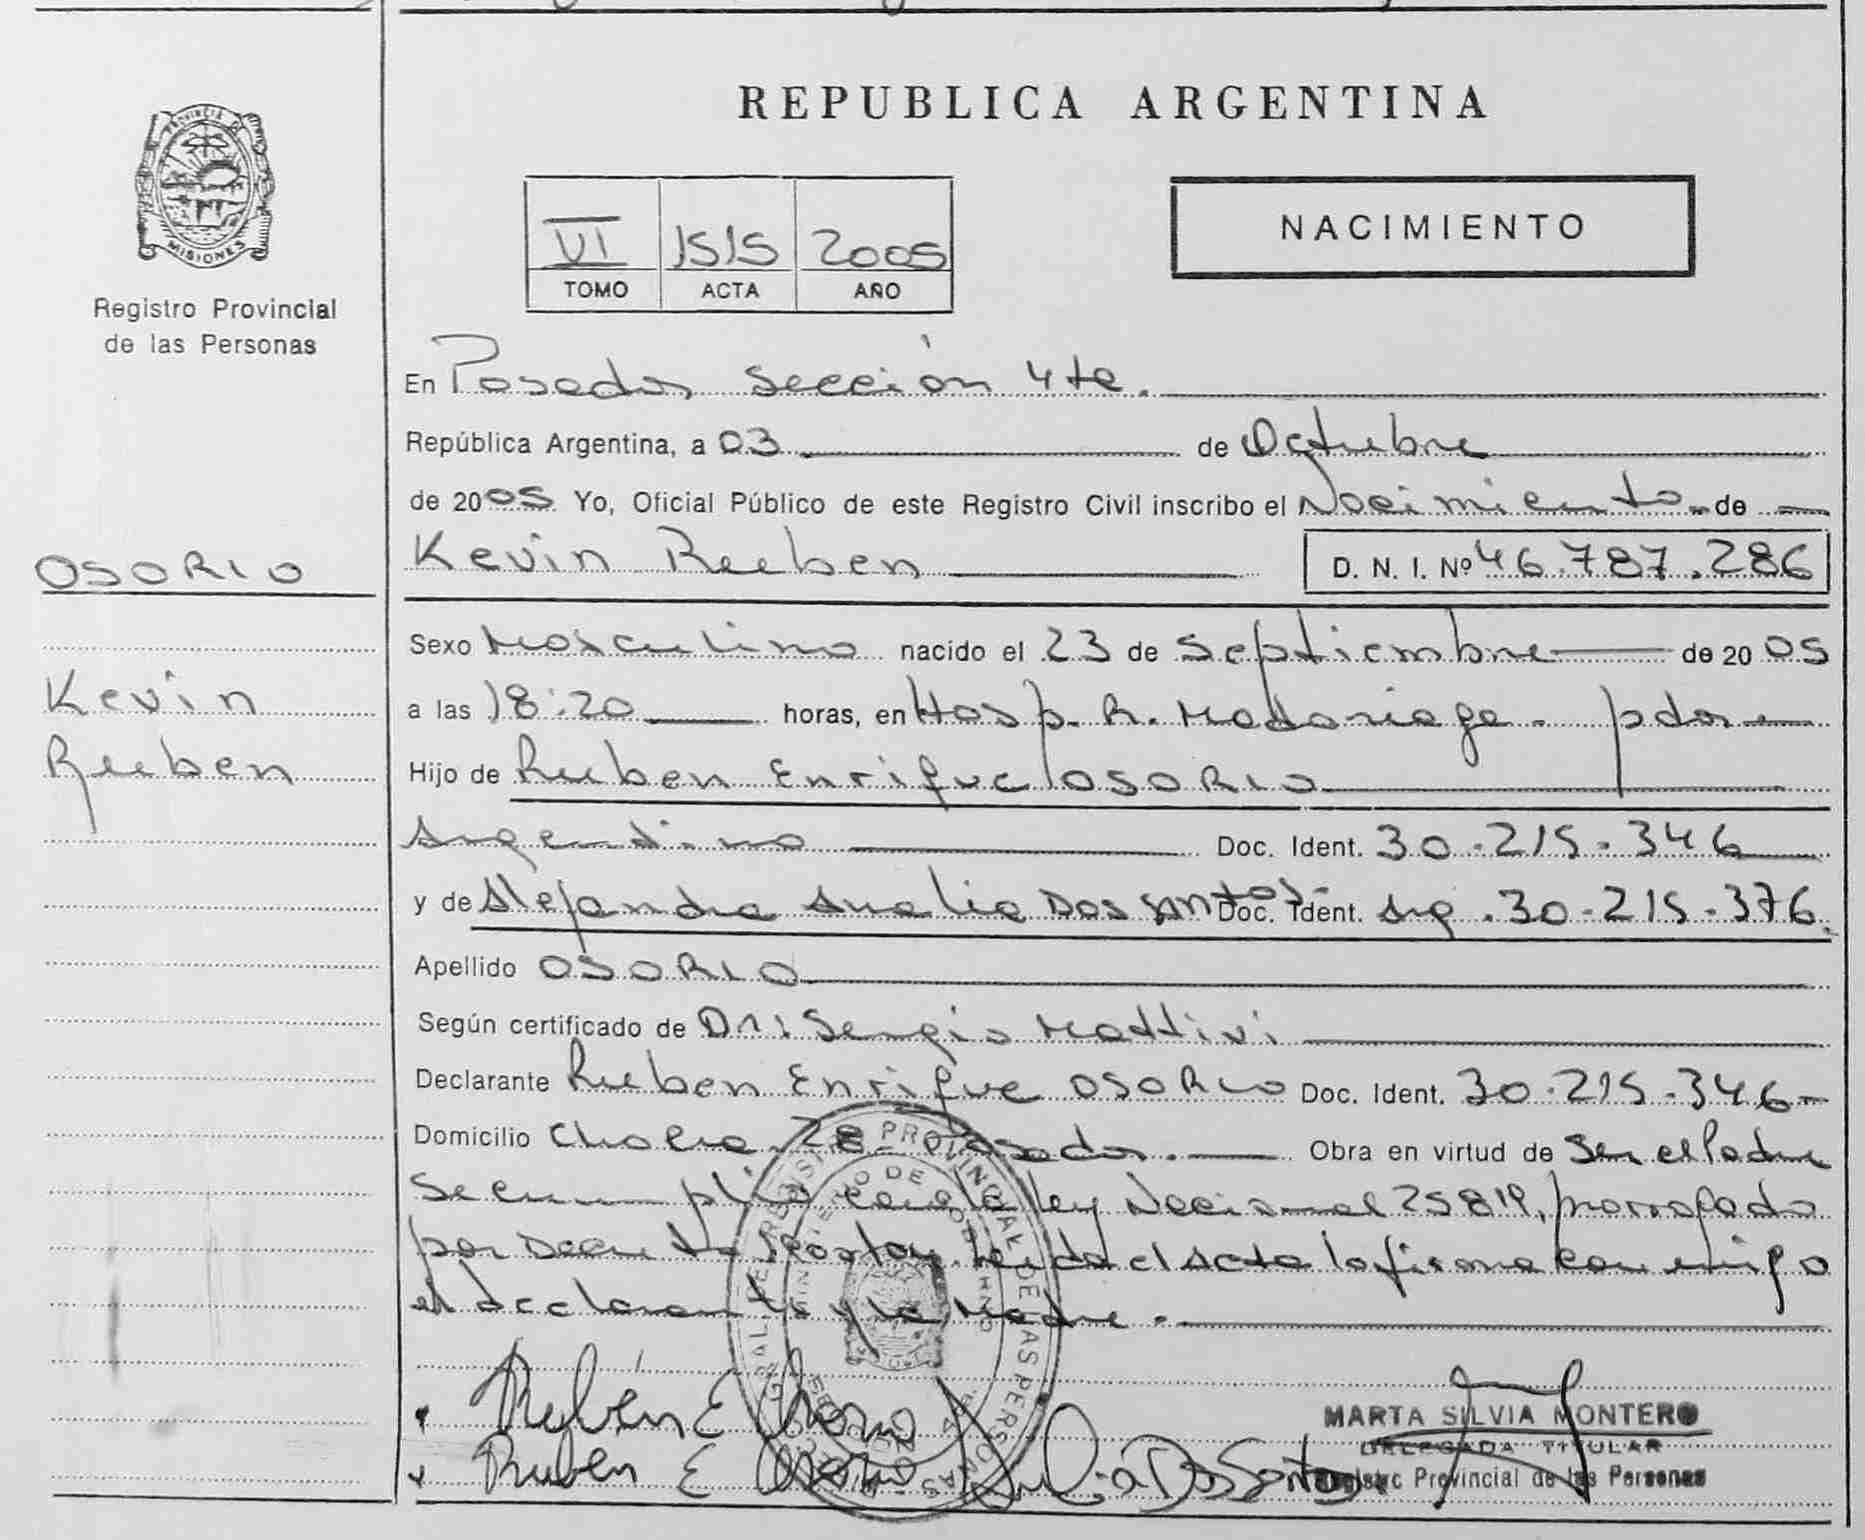 PROVINCIA DE
MISIONES
Registro Provincial
de las Personas
OSORIO
Kevin
Ruben
REPUBLICA ARGENTINA
VI 1515 2005
TOMO ACTA AÑO
NACIMIENTO
En Posadas Sección 4ta.
República Argentina, a 03 de Octubre
de 2005 Yo, Oficial Público de este Registro Civil inscribo el Nacimiento de
Kevin Ruben D. N. I. Nº 46.787.286
Sexo Masculino nacido el 23 de Septiembre de 2005
a las 18:20 horas, en Hosp. R. Madariaga - pdas
Hijo de Ruben Enrique OSORIO
Argentino Doc. Ident. 30.215.346
y de Alejandra Analia DOS SANTOS Doc. Ident. Arg. 30.215.376
Apellido OSORIO
Según certificado de Dr: Sergio Mattivi
Declarante Ruben Enrique OSORIO Doc. Ident. 30.215.346
Domicilio 28 Posadas. Obra en virtud de Ser el Padre
Se cumple con la ley Nacional 25819, prorrogado
por Decreto leida el Acta la firma conmigo
el declarante y la Madre.
Rubén E Osorio
Rubén E Osorio Dos Santos
MARTA SILVIA MONTERO
DELEGADA TITULAR
Registro Provincial de las Personas
REGISTRO PROVINCIAL DE LAS PERSONAS
MINISTERIO DE GOBIERNO